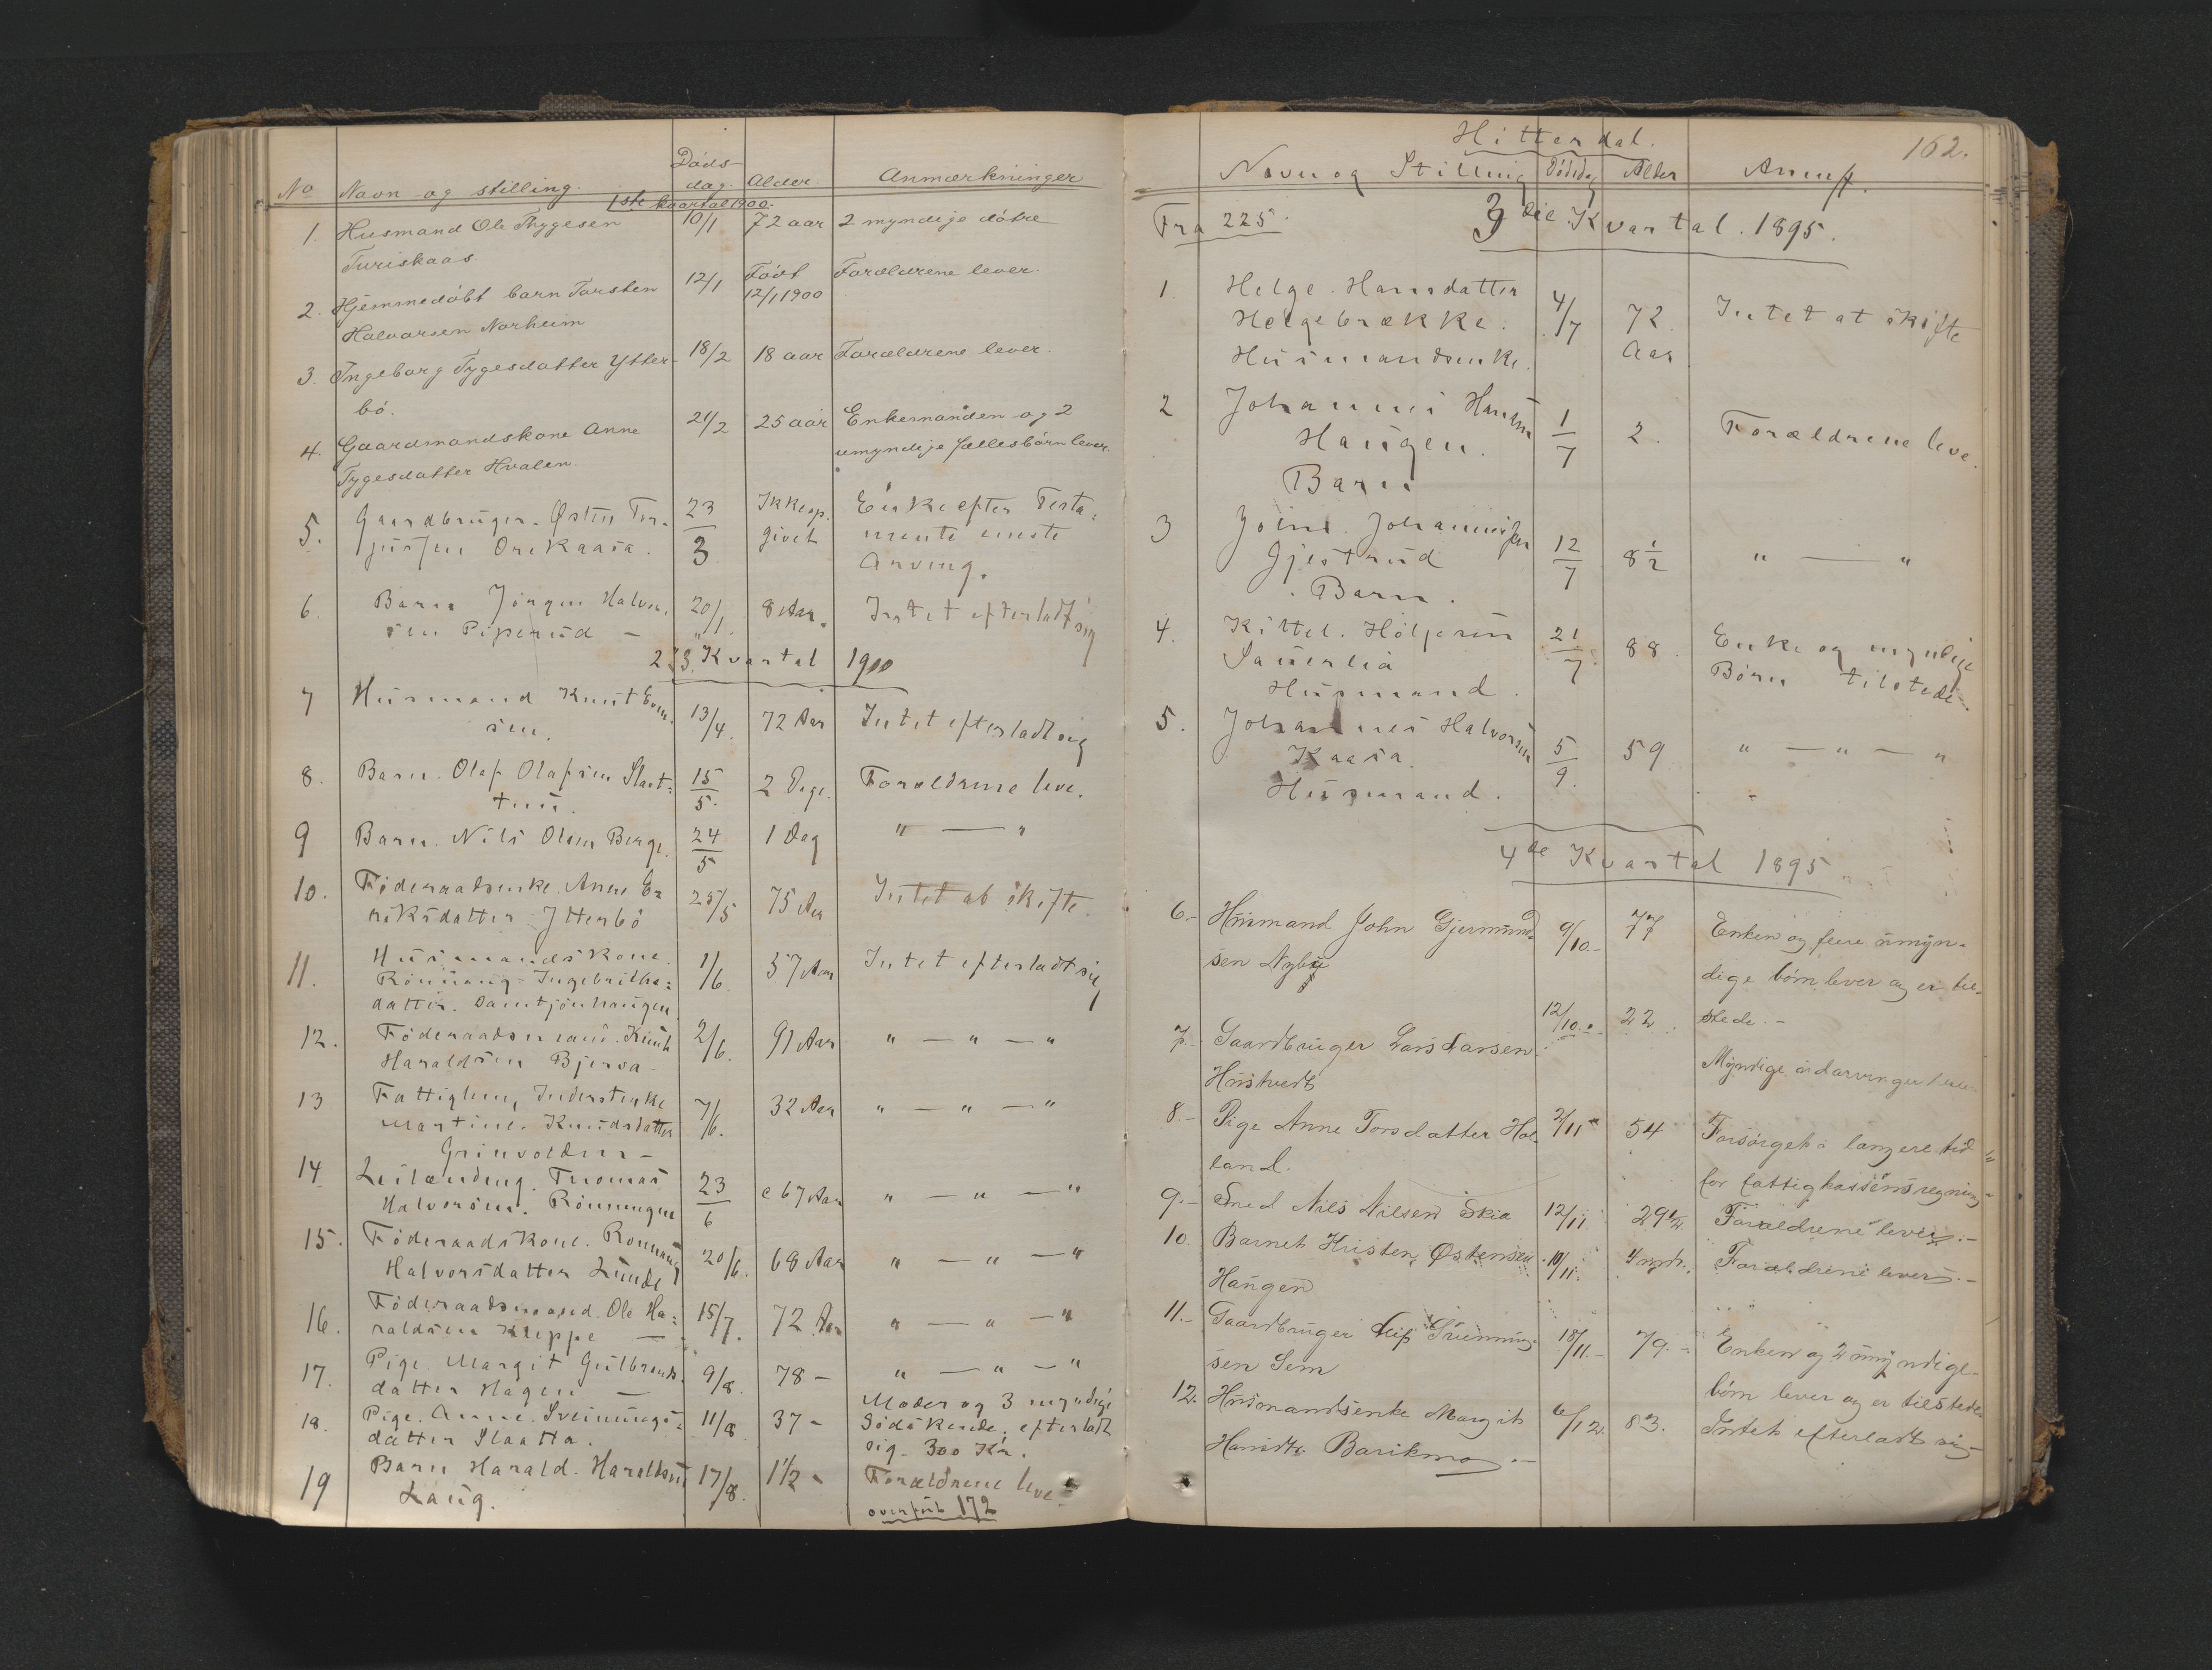 No Navn og stilling. Döds-dag. Alder. Anmærkninger
1ste kvartal 1900.
1. Husmand Ole Thygesen 10/1 72 aar 2 myndige döttre
Turiskaas.
2. Hjemmedöbt barn Torsten 12/1 Født Forældrene lever.
Halvorsen Norheim 12/1 1900
3. Ingeborg Tygesdatter Ytter- 18/2 18 aar Forældrene lever.
bö.
4. Gaardmandskone Anne 21/2 25 aar Enkemanden og 2
Tygesdatter Hvalen. umyndige fællesbörn lever.
5. Gaardbruger. Østen Tor- 23/3 Ikke op- Enke efter Testa-
jussen Orekaasa. givet mente eneste
Arving.
6. Barn Jörgen Halvor- 20/1 8 Aar. Intet efterladt sig
sen Piperud —
2 & 3 Kvartal 1900
7 Husmand Knut Even- 13/4. 72 Aar Intet efterladt sig
sen.
8. Barn. Olaf Olafsen Slaat- 15/5. 2 Dage. Forældrene leve.
tun.
9 Barn. Nils Olsen Berge. 24/5 1 Dag " — "
10. Föderaadsenke. Anne E- 25/5 75 Aar Intet at skifte.
riksdatter Ytterbö
11. Husmandskone. 1/6. 57 Aar Intet efterladt sig
Rönnaug Ingebrithsdatter. Damtjönhaugen
12. Föderaadsmand. Knut 2/6. 91 Aar " — " — "
Haraldsen Bjerva
13 Fattiglem, Inderstenke 7/6. 32 Aar " — " — "
Martine. Knudsdatter
Grinvolden —
14 Leilænding. Thomas 23/6 c 67 Aar " — " — "
Halvorsen. Rönningen
15. Föderaadskone. Rönnaug 20/6. 68 Aar " — " — "
Halvorsdatter Lunde
16. Föderaadsmand. Ole Ha- 15/7. 72 Aar " — " — "
raldsen Kleppe —
17. Pige. Margit Gulbrands- 9/8. 78 — " — " — "
datter Hagen —
18. Pige. Anne. Sveinungs- 11/8 37 - Moder og 3 myndige
datter Slaatta. Södskende. efterladt
sig. 300 Kr.
19 Barn Harald. Haraldsen 17/8. 1 1/2 - Forældrene leve.
Haug.
overfört 172
Hitterdal. 162.
Navn og Stilling Dödsdag Alder Anmk.
Fra 225. 3die Kvartal. 1895.
1 Helge. Hansdatter 4/7 72 Intet at skifte
Helgebrække. Aar
Husmandsenke.
2 Johannes Hansen 1/7 2. Forældrene leve.
Haugen.
Barn
3 John. Johannessen 12/7 8 1/2 " — "
Gjestrud
Barn.
4. Kittel. Höljesen 21/7 88. Enke og myndige
Sauerlia Börn tilstede.
Husmand.
5. Johannes Halvorsen 5/9. 59 " — " — "
Kaasa.
Husmand.
4de Kvartal 1895
6.- Husmand John Gjermund- 9/10.- 77 Enken og flere umyn-
sen Nybu dige börn lever og er til-
stede.-
7.- Gaardbruger Lars Larsen 12/10.- 22 Myndige udarvinger lever
Hustvedt
8.- Pige Anne Torsdatter Hol- 2/11 54 Forsörget i længere tid
land. for fattigkassens regning
9.- Smed Nils Nilsen Skia 12/11 29 1/2 Forældrene lever.-
10. Barnet Kristen Østensen 10/11. 4 mdr. Forældrene lever.-
Haugen
11.- Gaardbruger Leif Sveinung- 18/11.- 79.- Enken og 2 myndige
sen Sem börn lever og er tilstede.
12. Husmandsenke Margit 6/12. 83. Intet efterladt sig
Hansdtr. Barikmo.-